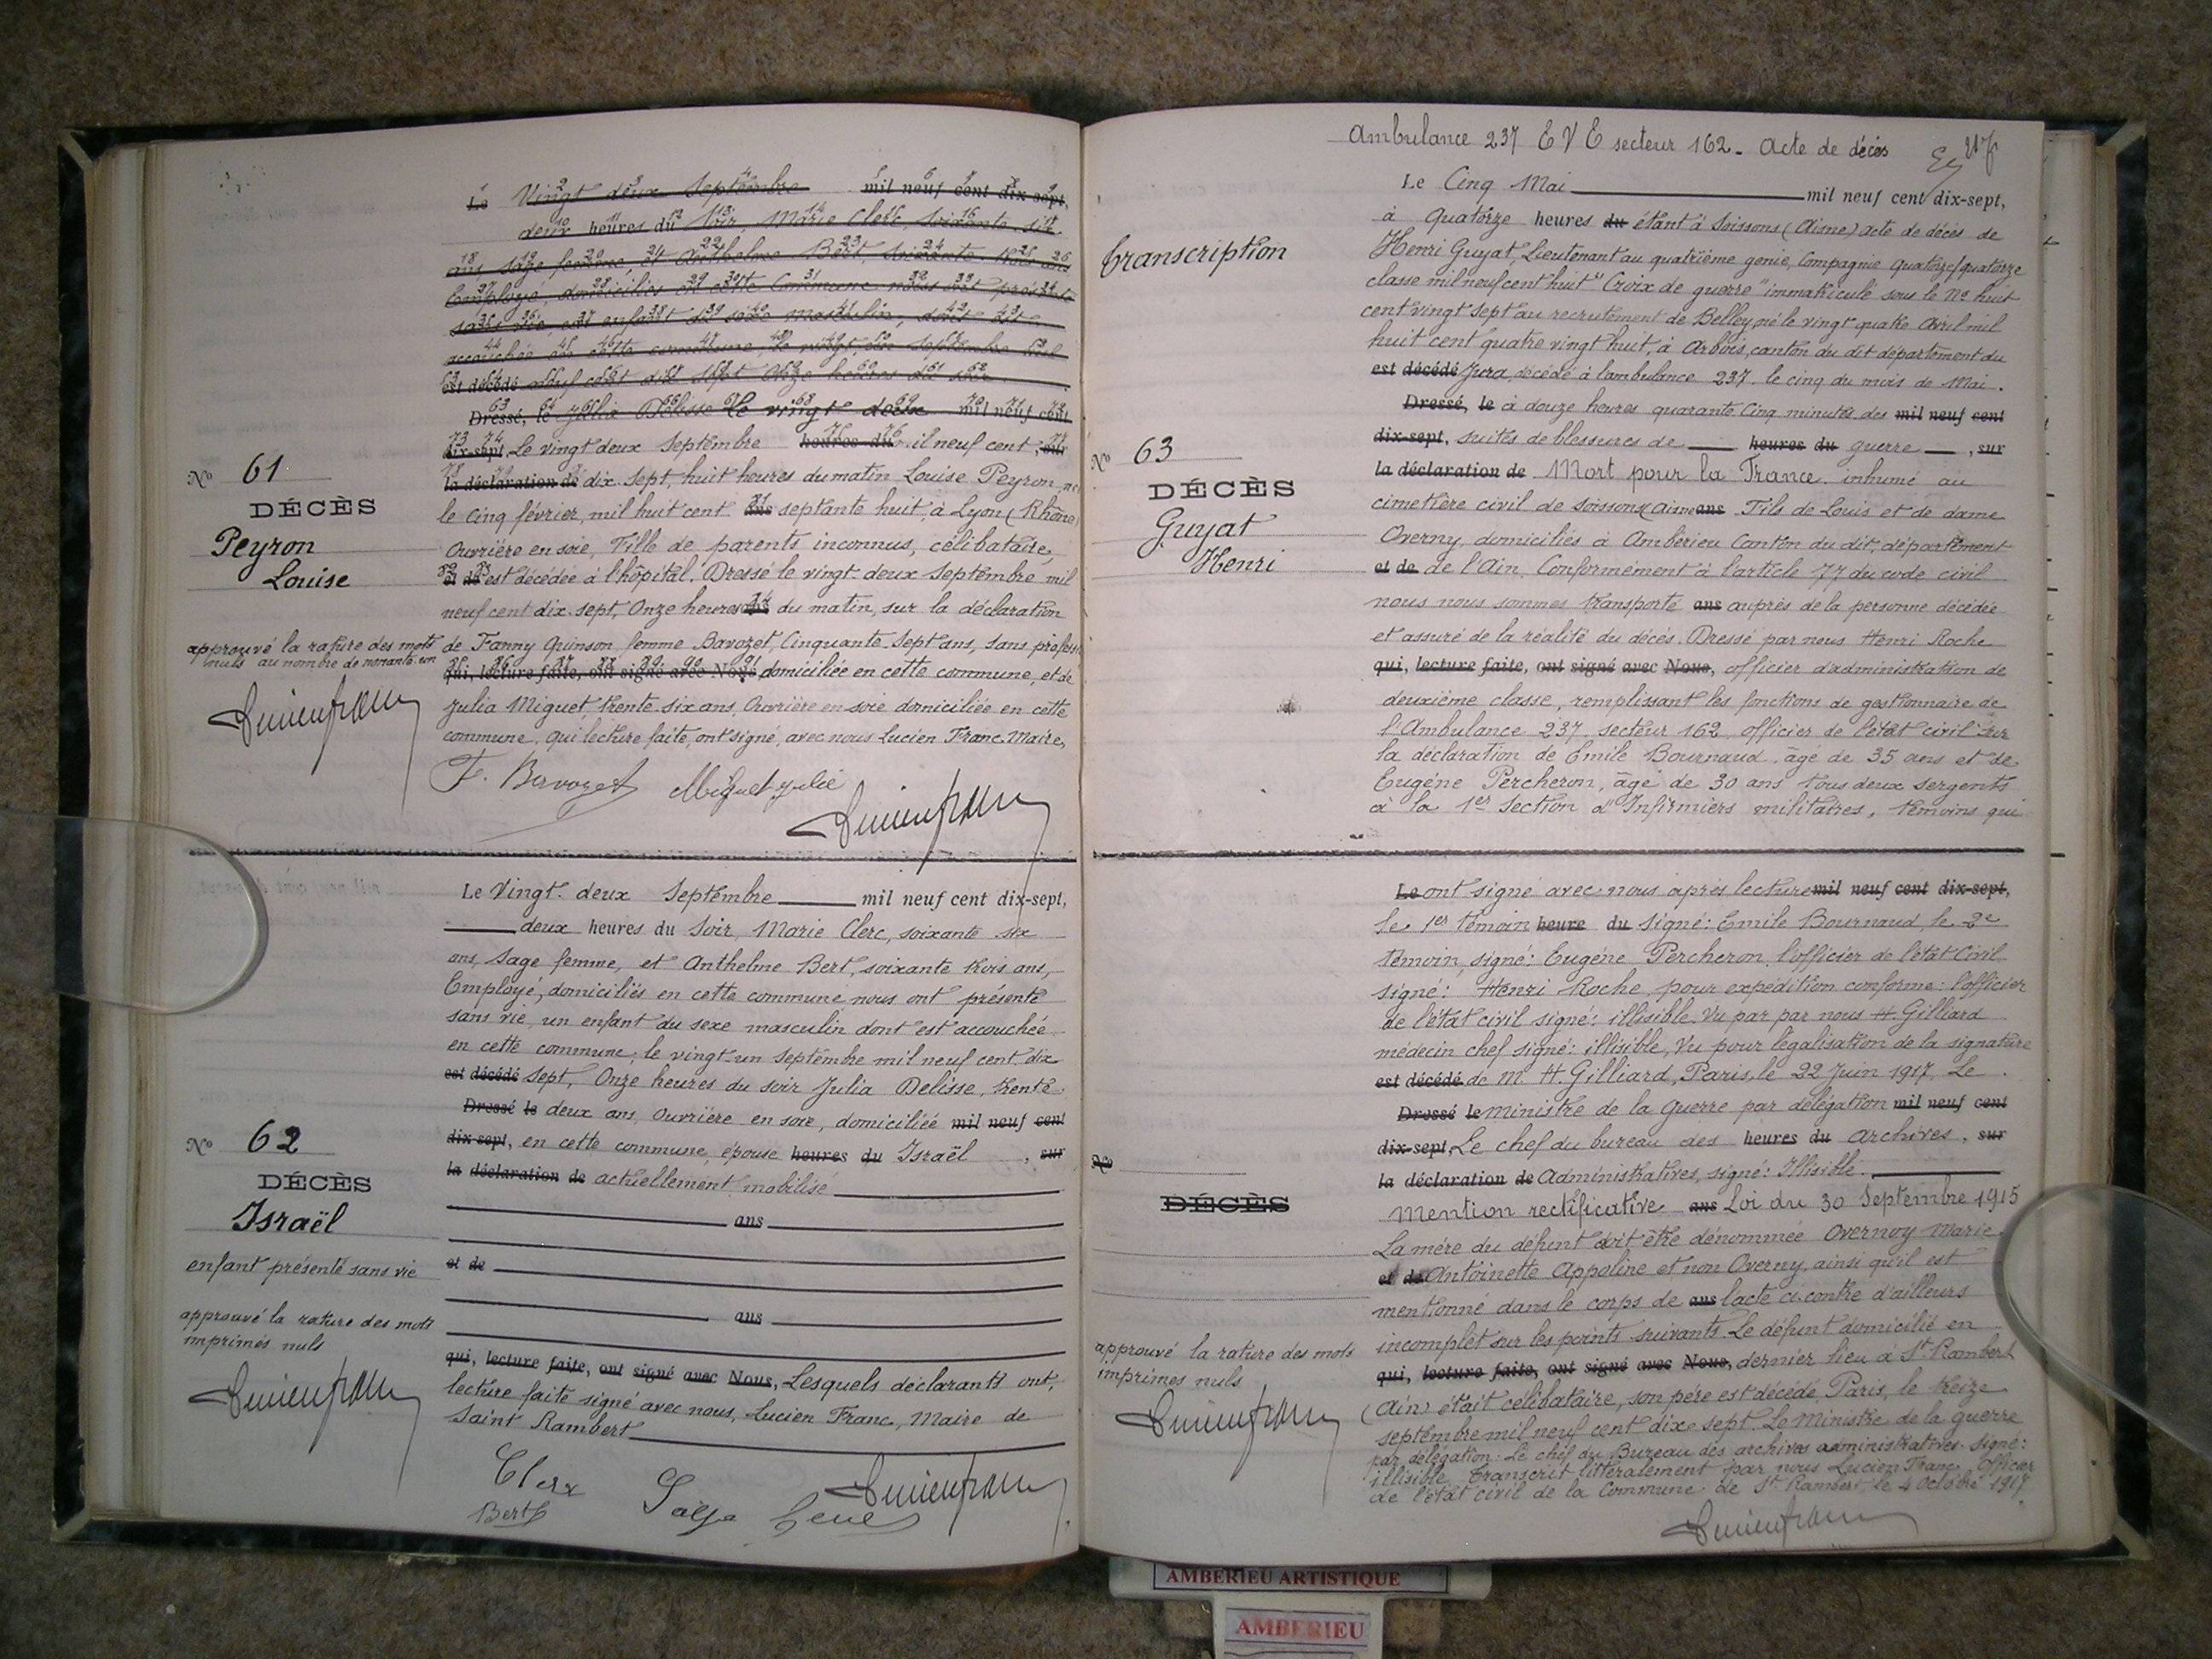 Le Vingt deux Septembre mil neuf cent dix-sept,
deux heures du soir, Marie Clerc, soixante six
ans, Sage femme, et Anthelme Bert, soixante trois ans
Employé, domiciliés en cette Commune nous ont présenté
sans vie un enfant du sexe masculin, dont est
accouchée en cette commune, le vingt un Septembre mil
est décédé neuf cent dix sept Onze heures du soir
Dressé, le Julia Delisse Le vingt deux mil neuf cent
dix-sept, Le vingt deux Septembre heures du mil neuf cent, sur
la déclaration de dix-sept, huit heures du matin Louise Peyron née
le cinq février, mil huit cent ans septante huit, à Lyon (Rhône)
Ouvrière en soie, Fille de parents inconnus, célibataire,
et de est décédée à l'hôpital. Dressé le vingt deux Septembre mil
neuf cent dix-sept, Onze heures ans du matin, sur la déclaration
de Fanny Quinson femme Bavozet, Cinquante Sept ans, sans profession
qui, lecture faite, ont signé avec Nous domiciliée en cette commune, et de
Julia Miguet, trente-six ans, Ouvrière en soie domiciliée en cette
commune, qui lecture faite, ont signé, avec nous Lucien Franc, Maire,
F. Bavozet Miguet Julie
Lucien Franc
No 61
DÉCÈS
Peyron
Louise
approuvé la rature des mots
nuls au nombre de nonante-un
Lucien Franc
Le Vingt-deux Septembre mil neuf cent dix-sept,
deux heures du Soir, Marie Clerc, soixante six
ans, Sage femme, et Anthelme Bert, soixante trois ans,
Employé, domiciliés en cette commune nous ont présenté
sans vie, un enfant du sexe masculin dont est accouchée
en cette commune, le vingt un Septembre mil neuf cent dix
est décédé Sept, Onze heures du soir Julia Delisse, trente
Dressé le deux ans, Ouvrière en soie, domiciliée mil neuf cent
dix-sept, en cette commune, épouse heures du Israël, sur
la déclaration de actuellement mobilisé
ans
et de
ans
qui, lecture faite, ont signé avec Nous, Lesquels déclarants ont,
lecture faite signé avec nous, Lucien Franc, Maire de
Saint Rambert
Clerc
Bert
Sage femme
Lucien Franc
No 62
DÉCÈS
Israël
enfant présenté sans vie
approuvé la rature des mots
imprimés nuls
Lucien Franc
Ambulance 237 E V E secteur 162 - Acte de décès
Le Cinq Mai mil neuf cent dix-sept,
à Quatorze heures du étant à Soissons (Aisne) acte de décès de
Henri Guyat, Lieutenant au quatrième génie, Compagnie quatorze/quatorze
classe mil neuf cent huit "Croix de guerre" immatriculé sous le No huit
cent vingt sept au recrutement de Belley né le vingt quatre Avril mil
huit cent quatre vingt huit, à Arbois, canton du dit département du
est décédé Jura, décédé à l'ambulance 237. le cinq du mois de Mai.
Dressé, le à douze heures quarante cinq minutes des mil neuf cent
dix-sept, suites de blessures de heures du guerre, sur
la déclaration de Mort pour la France. inhumé au
cimetière civil de Soissons (Aisne ans Fils de Louis et de dame
Overny, domiciliés à Ambérieu Canton du dit, département
et de de l'Ain Conformément à l'article 77 du code civil
nous nous sommes transporté ans auprès de la personne décédée
et assuré de la réalité du décès. Dressé par nous Henri Roche
qui, lecture faite, ont signé avec Nous, officier d'administration de
deuxième classe, remplissant les fonctions de gestionnaire de
l'Ambulance 237 secteur 162 officier de l'état civil sur
la déclaration de Emile Bournaud, âgé de 35 ans et de
Eugène Percheron, âgé de 30 ans tous deux sergents
à la 1er Section d'Infirmiers militaires, témoins qui
transcription
No 63
DÉCÈS
Guyat
Henri
Le ont signé avec nous après lecture mil neuf cent dix-sept,
le 1er témoin heure du signé: Emile Bournaud, le 2e
témoin, signé: Eugène Percheron, l'officier de l'état Civil
signé: Henri Roche, pour expédition conforme: l'officier
de l'état civil signé: illisible. Vu par par nous H. Gilliard
médecin chef signé: illisible, Vu pour légalisation de la signature
est décédé de M. H. Gilliard, Paris, le 22 Juin 1917. Le
Dressé le ministre de la guerre par délégation mil neuf cent
dix-sept, Le chef du bureau des heures du archives, sur
la déclaration de Administratives, signé: Illisible.
Mention rectificative ans Loi du 30 Septembre 1915
La mère du défunt doit être dénommée Overnoy Marie
et de Antoinette Appoline et non Overny, ainsi qu'il est
mentionné dans le corps de ans l'acte ci-contre d'ailleurs
incomplet sur les points suivants. Le défunt domicilié en
qui, lecture faite, ont signé avec Nous, dernier lieu à St Rambert
(Ain) était célibataire, son père est décédé. Paris, le treize
septembre mil neuf cent dix-sept. Le Ministre de la guerre
par délégation: Le chef du Bureau des archives administratives. Signé:
illisible transcrit littéralement par nous Lucien Franc, Officier
de l'état civil de la Commune de St Rambert, le 4 Octobre 1917.
Lucien Franc
No
DÉCÈS
approuvé la rature des mots
imprimés nuls
Lucien Franc
AMBERIEU ARTISTIQUE
AMBERIEU